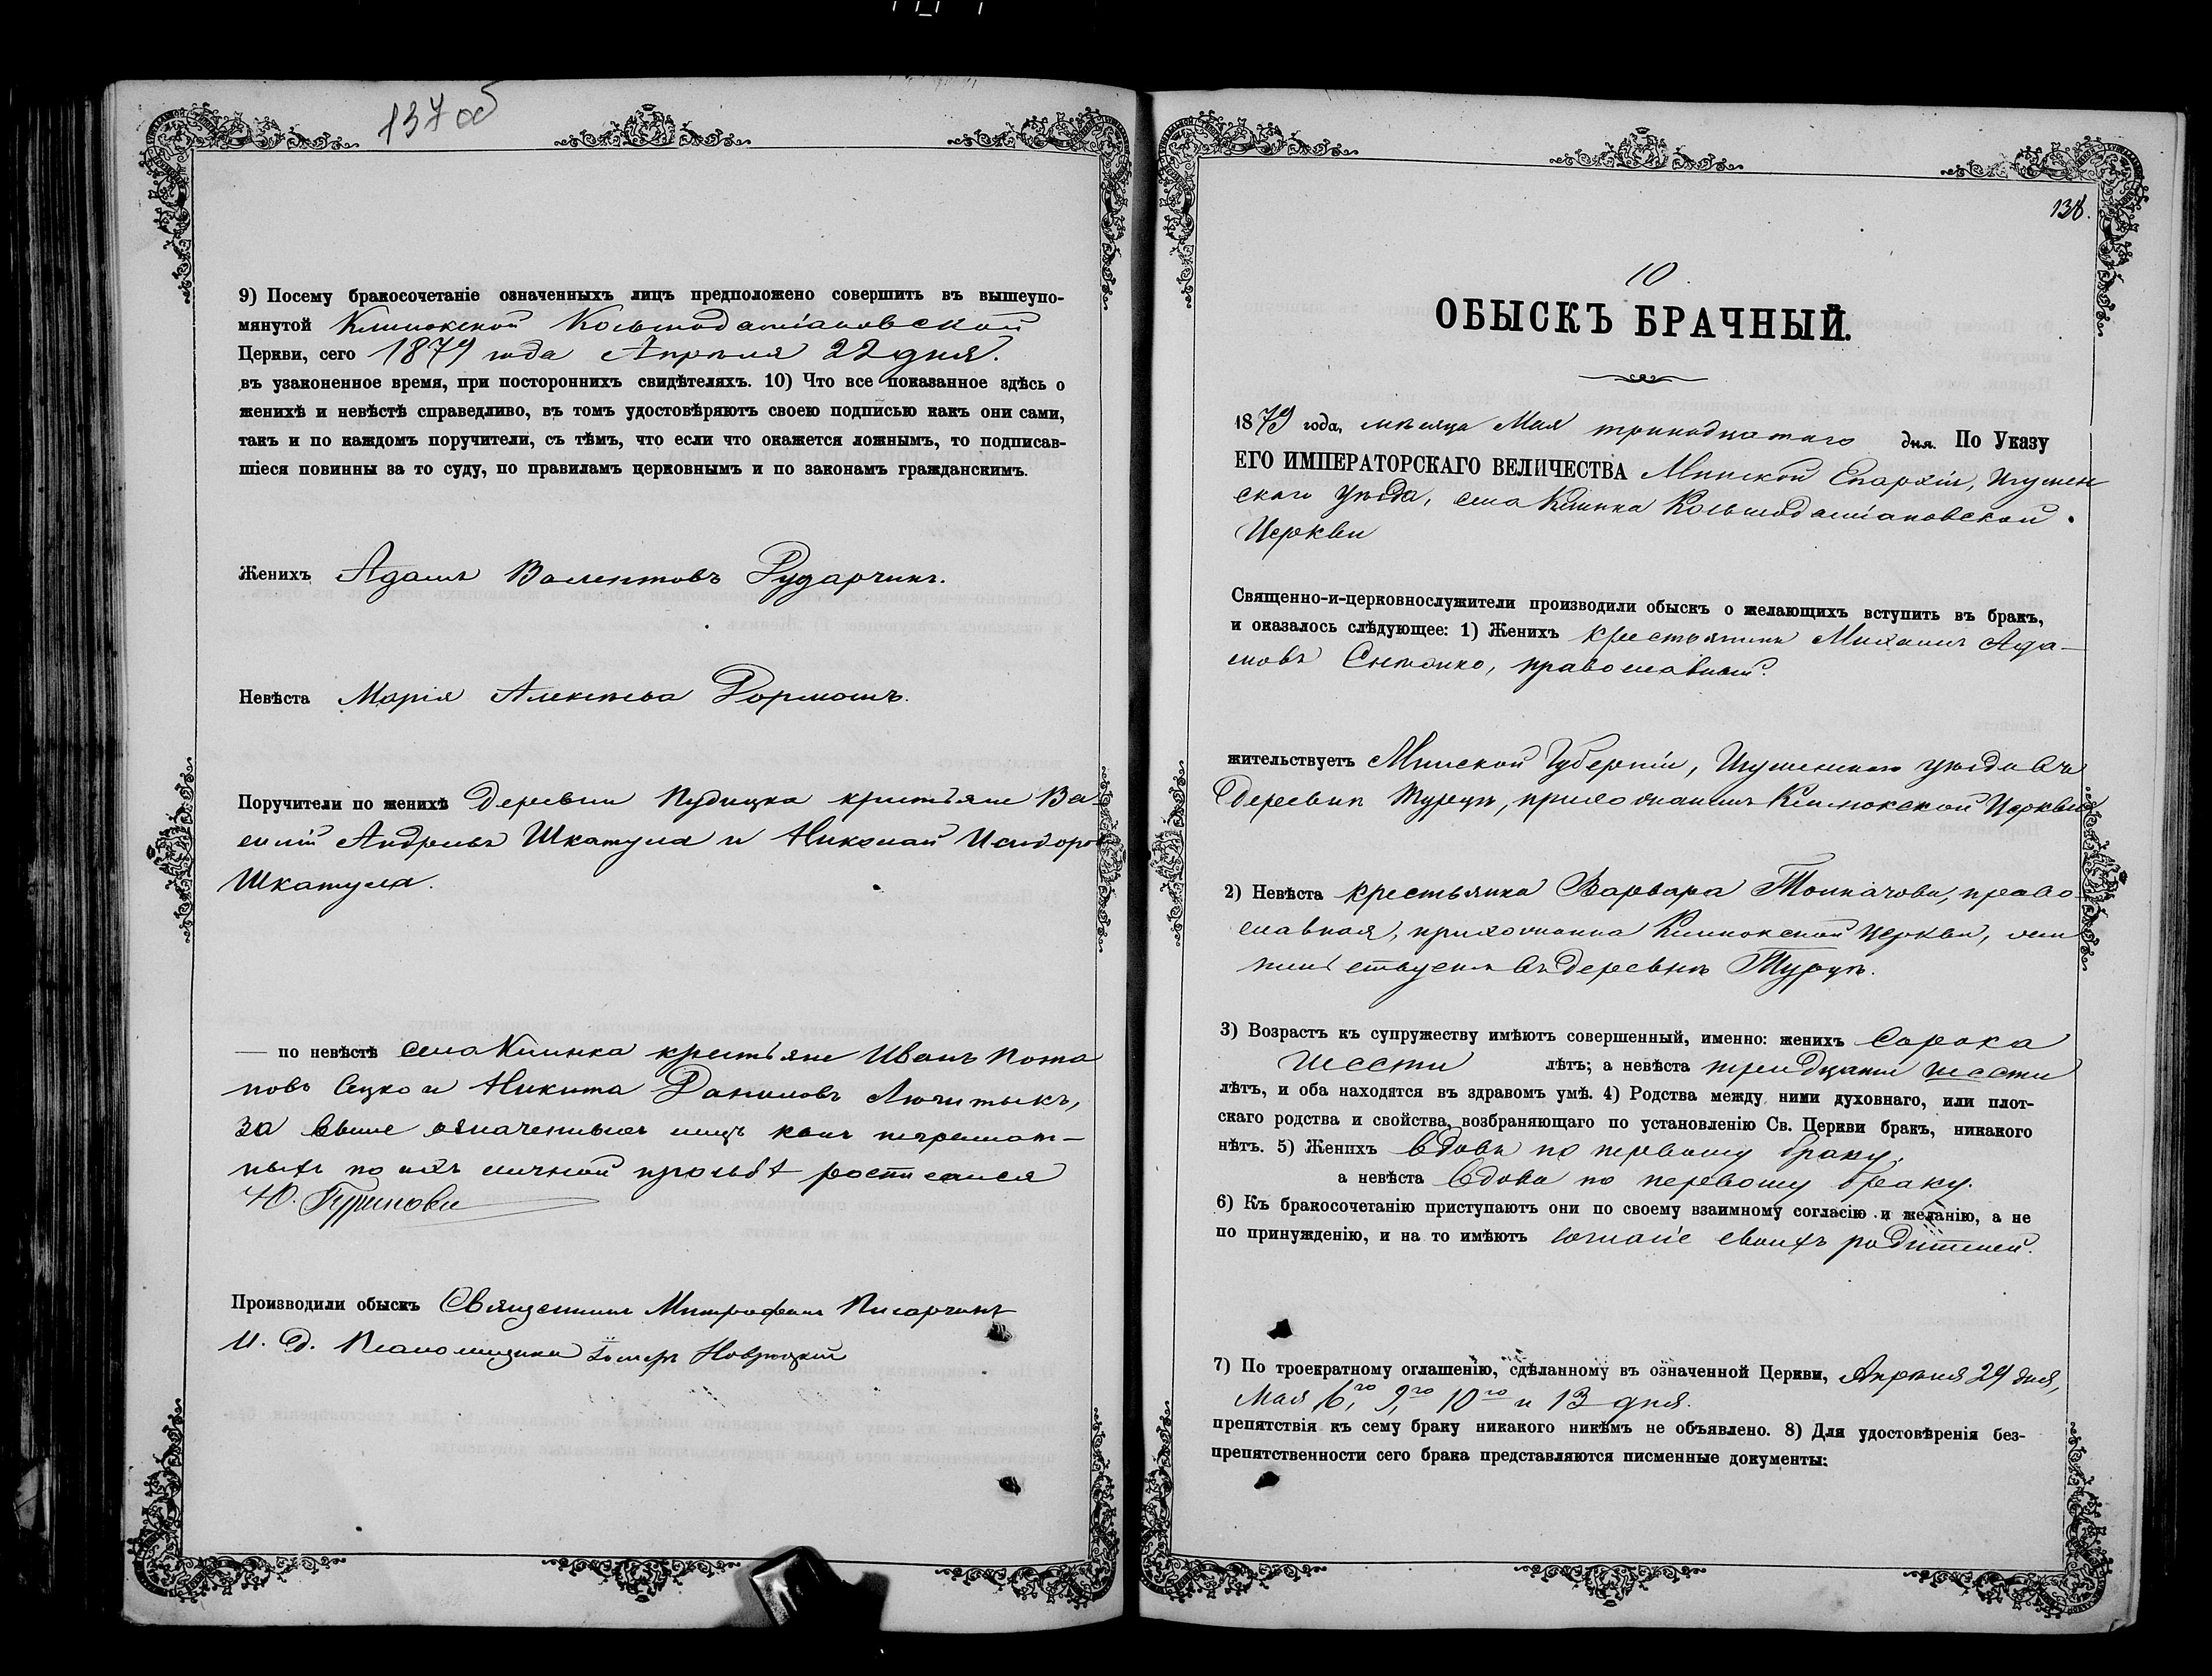 137 об
9) Посему бракосочетаніе означенныхъ лицъ предположено совершить въ вышеупо-
мянутой Клинокской Косьмодаміановской
Церкви, сего 1879 года Апрѣля 22 дня.
въ узаконенное время, при постороннихъ свидѣтеляхъ. 10) Что все показанное здѣсь о
женихѣ и невѣстѣ справедливо, въ томъ удостовѣряютъ своею подписью какъ они сами,
такъ и по каждомъ поручители, съ тѣмъ, что если что окажется ложнымъ, то подписав-
шіеся повинны за то суду, по правиламъ церковнымъ и по законамъ гражданскимъ.
Женихъ Адамъ Валентовъ Рударчикъ.
Невѣста Марія Алексѣева
Поручители по женихѣ Деревни Пудицка крестьяне Ва-
силій Андреевъ Шкатула и Николай Исидоровъ
Шкатула.
— по невѣстѣ села Клинка крестьяне Иванъ Пота
повъ Сецко и Никита Даниловъ
за выше означенныхъ лицъ какъ неграмот-
ныхъ по ихъ личной прозьбѣ росписался
Ю.
Производили обыскъ Священникъ Митрофанъ Писарчикъ
И. д. Псаломщика Новрозкій
138.
10
ОБЫСКЪ БРАЧНЫЙ.
1879 года, мѣсяца Мая тринадцатаго дня. По Указу
ЕГО ИМПЕРАТОРСКАГО ВЕЛИЧЕСТВА Минской Епархіи, Игумен
скаго уѣзда, села Клинка Косьмодаміановской
Церкви
Священно-и-церковнослужители производили обыскъ о желающихъ вступить въ бракъ,
и оказалось слѣдующее: 1) Женихъ крестьянинъ Михаилъ Ада-
мовъ Снитко, православный.
жительствуетъ Минской Губерніи, Игуменскаго уѣзда въ
деревнѣ Турцѣ, прихожанинъ Клинокской Церкви
2) Невѣста крестьянка Варвара Толкачова, право
славная, прихожанка Клинокской Церкви, жи
тельствуетъ въ деревнѣ Турцѣ.
3) Возрастъ къ супружеству имѣютъ совершенный, именно: женихъ сорока
шести лѣтъ; а невѣста тридцати шести
лѣтъ, и оба находятся въ здравомъ умѣ. 4) Родства между ними духовнаго, или плот-
скаго родства и свойства, возбраняющаго по установленію Св. Церкви бракъ, никакого
нѣтъ. 5) Женихъ вдовъ по первому браку,
а невѣста вдова по первому браку.
6) Къ бракосочетанію приступаютъ они по своему взаимному согласію и желанію, а не
по принужденію, и на то имѣютъ согласіе своихъ родителей.
7) По троекратному оглашенію, сдѣланному въ означенной Церкви, Апрѣля 29 дня,
Мая 6го, 9го 10го и 13 дня.
препятствія къ сему браку никакого никѣмъ не объявлено. 8) Для удостовѣренія без-
препятственности сего брака представляются писменные документы: